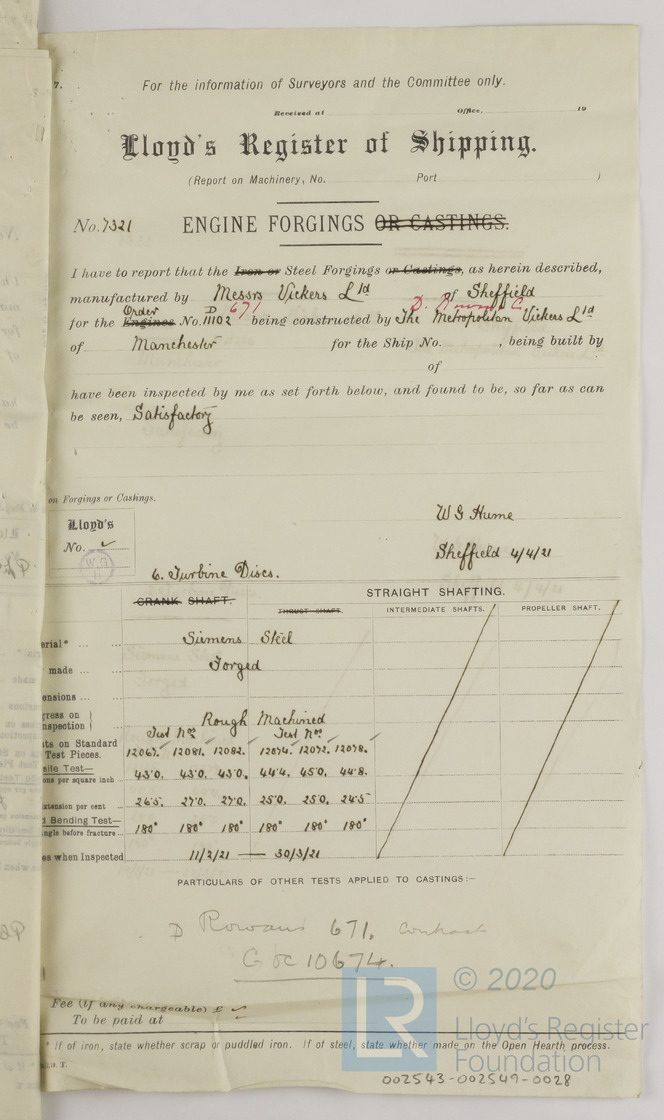 7.
For the information of Surveyors and the Committee only.
Received at Office, 19
Lloyd's Register of Shipping.
(Report on Machinery, No. Port )
No. 7321 ENGINE FORGINGS OR CASTINGS.
I have to report that the Iron or Steel Forgings or Castings, as herein described,
manufactured by Messrs Vickers Ltd of Sheffield
Order D 671 D. Rowan C.
for the Engines No. 11102 being constructed by The Metropolitan Vickers Ltd
of Manchester for the Ship No. , being built by
of
have been inspected by me as set forth below, and found to be, so far as can
be seen, Satisfactory
on Forgings or Castings.
W G Hume
Lloyd's
No. ✓
W.G
H
Sheffield 4/4/21
6. Turbine Discs.
CRANK SHAFT. THRUST SHAFT. STRAIGHT SHAFTING.
INTERMEDIATE SHAFTS. PROPELLER SHAFT.
erial* ... ... Siemens Steel
made ... ... Forged
ensions ... ...
gress on } Rough Machined
nspection }
Test Nos Test Nos
ts on Standard
Test Pieces. 12067. 12081. 12082. 12074. 12072. 12078.
sile Test— 43.0. 43.0. 43.0. 44.4. 45.0. 44.8.
ons per square inch ...
xtension per cent ... 26.5. 27.0. 27.0. 25.0. 25.0. 24.5
d Bending Test— 180° 180° 180° 180° 180° 180°
ngle before fracture ...
es when Inspected 11/2/21 — 30/3/21
PARTICULARS OF OTHER TESTS APPLIED TO CASTINGS:—
D Rowans 671. Contract
Goc 10674.
Fee (if any chargeable) £ ✓
To be paid at
* If of iron, state whether scrap or puddled iron. If of steel, state whether made on the Open Hearth process.
D. T.
LR
© 2020
Lloyd's Register
Foundation
002543-002549-0028